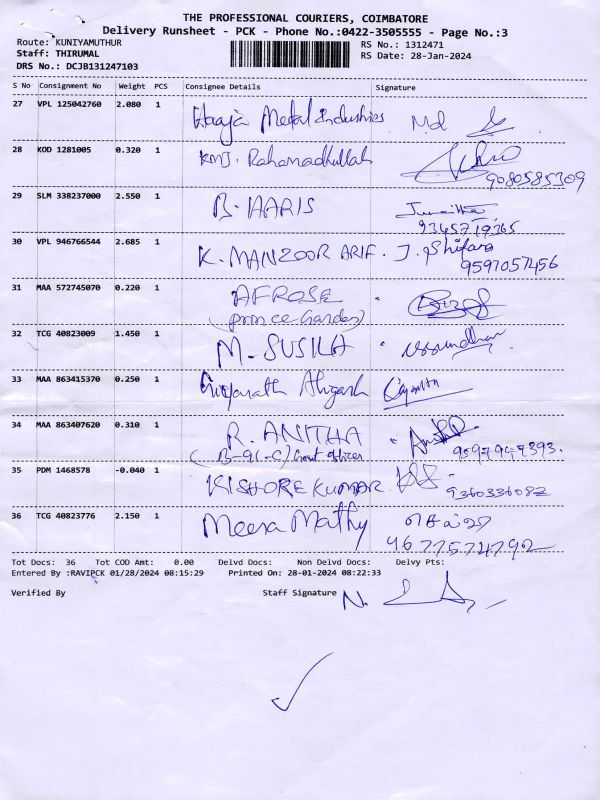 THE PROFESSIONAL COURIERS, COIMBATORE
Delivery Runsheet - PCK - Phone No.:0422-3505555 - Page No.:3
Route: KUNIYAMUTHUR RS No.: 1312471
Staff: THIRUMAL RS Date: 28-Jan-2024
DRS No.: DCJB131247103
S No Consignment No Weight PCS Consignee Details Signature
27 VPL 125042760 2.080 1 Haaja Metal Industries Md
28 KOD 1281005 0.320 1 KMJ. Rahamadhullah
9080585309
29 SLM 338237000 2.550 1 B. HARIS
9345719365
30 VPL 946766544 2.685 1 K. MANZOOR ARIF. J. Shifara
9597057456
31 MAA 572745070 0.220 1 AFROSE
(prince Garden)
32 TCG 40823009 1.450 1 M-SUSILA
33 MAA 863415370 0.250 1
34 MAA 863407620 0.310 1 R. ANITHA
(B-91-C) Officer 9597947393.
35 PDM 1468578 -0.040 1 KISHORE KUMAR
9360336082
36 TCG 40823776 2.150 1 Meera Mathy
9677574792
Tot Docs: 36 Tot COD Amt: 0.00 Delvd Docs: Non Delvd Docs: Delvy Pts:
Entered By :RAVIPCK 01/28/2024 08:15:29 Printed On: 28-01-2024 08:22:33
Verified By Staff Signature